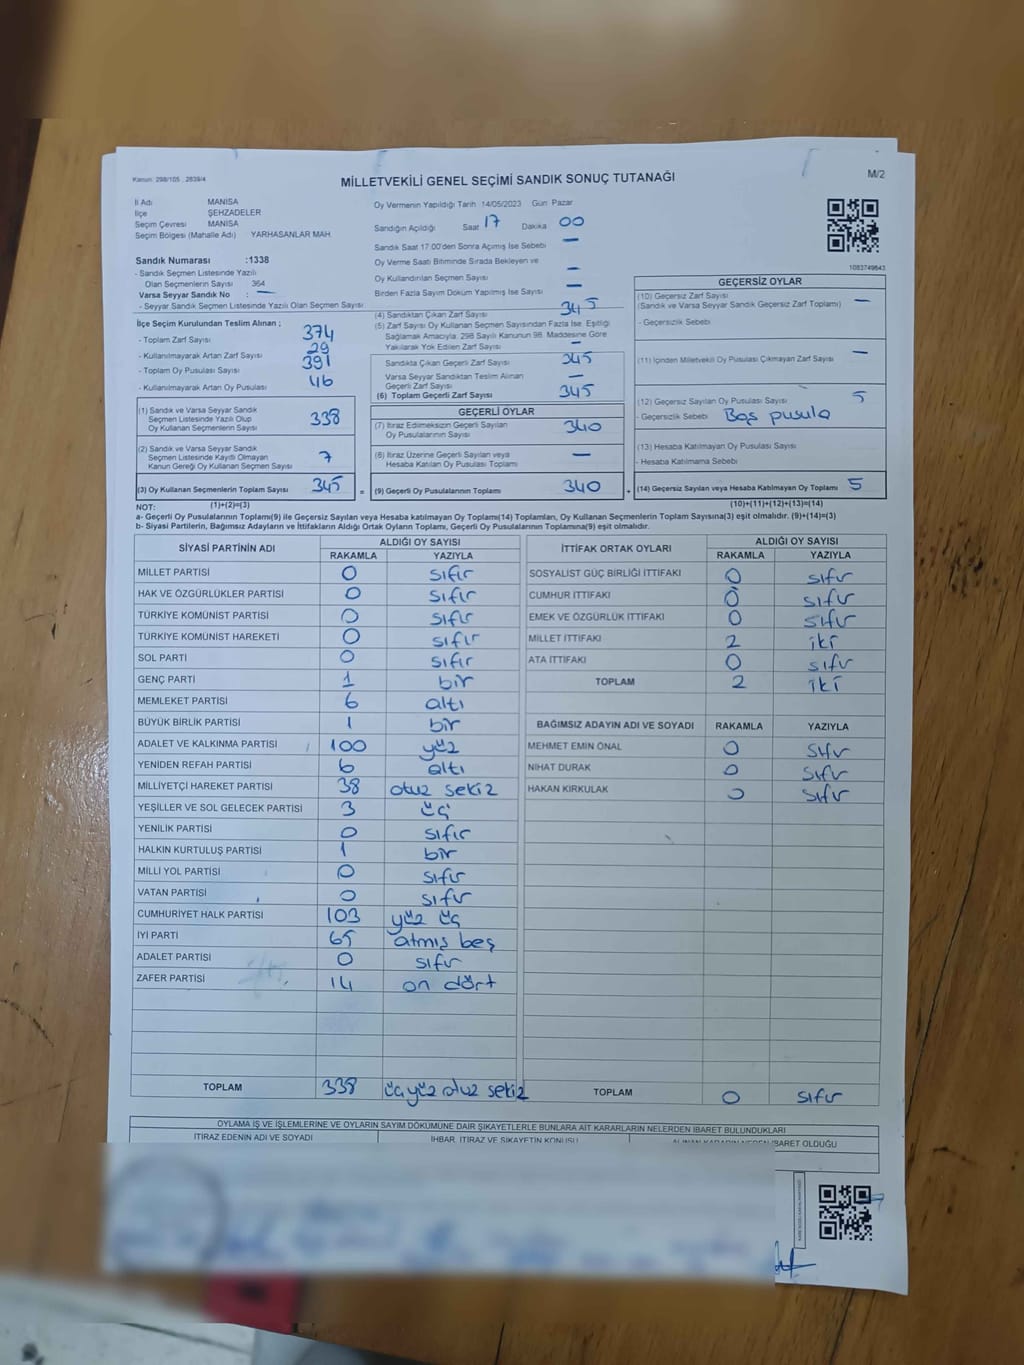 Kanun: 298/105 , 2839/4
MİLLETVEKİLİ GENEL SEÇİMİ SANDIK SONUÇ TUTANAĞI
M/2
İl Adı MANİSA
İlçe ŞEHZADELER
Seçim Çevresi MANİSA
Seçim Bölgesi (Mahalle Adı) YARHASANLAR MAH.
Sandık Numarası :1338
- Sandık Seçmen Listesinde Yazılı
Olan Seçmenlerin Sayısı 364
Varsa Seyyar Sandık No : —
- Seyyar Sandık Seçmen Listesinde Yazılı Olan Seçmen Sayısı
İlçe Seçim Kurulundan Teslim Alınan ;
- Toplam Zarf Sayısı 374
- Kullanılmayarak Artan Zarf Sayısı 29
- Toplam Oy Pusulası Sayısı 391
- Kullanılmayarak Artan Oy Pusulası 46
(1) Sandık ve Varsa Seyyar Sandık
Seçmen Listesinde Yazılı Olup
Oy Kullanan Seçmenlerin Sayısı 338
(2) Sandık ve Varsa Seyyar Sandık
Seçmen Listesinde Kayıtlı Olmayan
Kanun Gereği Oy Kullanan Seçmen Sayısı 7
(3) Oy Kullanan Seçmenlerin Toplam Sayısı 345 =
(1)+(2)=(3)
Oy Vermenin Yapıldığı Tarih 14/05/2023 Gün Pazar
Sandığın Açıldığı Saat 17 Dakika 00
Sandık Saat 17:00'den Sonra Açımış İse Sebebi —
Oy Verme Saati Bitiminde Sırada Bekleyen ve
Oy Kullandırılan Seçmen Sayısı —
Birden Fazla Sayım Döküm Yapılmış İse Sayısı —
(4) Sandıktan Çıkan Zarf Sayısı 345
(5) Zarf Sayısı Oy Kullanan Seçmen Sayısından Fazla İse, Eşitliği
Sağlamak Amacıyla, 298 Sayılı Kanunun 98. Maddesine Göre
Yakılarak Yok Edilen Zarf Sayısı —
Sandıkta Çıkan Geçerli Zarf Sayısı 345
Varsa Seyyar Sandıktan Teslim Alınan
Geçerli Zarf Sayısı —
(6) Toplam Geçerli Zarf Sayısı 345
GEÇERLİ OYLAR
(7) İtiraz Edilmeksizin Geçerli Sayılan
Oy Pusulalarının Sayısı 340
(8) İtiraz Üzerine Geçerli Sayılan veya
Hesaba Katılan Oy Pusulası Toplamı —
(9) Geçerli Oy Pusulalarının Toplamı 340 +
1083749643
GEÇERSİZ OYLAR
(10) Geçersiz Zarf Sayısı
(Sandık ve Varsa Seyyar Sandık Geçersiz Zarf Toplamı) —
- Geçersizlik Sebebi
(11) İçinden Milletvekili Oy Pusulası Çıkmayan Zarf Sayısı —
(12) Geçersiz Sayılan Oy Pusulası Sayısı 5
- Geçersizlik Sebebi Boş pusula
(13) Hesaba Katılmayan Oy Pusulası Sayısı
- Hesaba Katılmama Sebebi
(14) Geçersiz Sayılan veya Hesaba Katılmayan Oy Toplamı 5
(10)+(11)+(12)+(13)=(14)
NOT:
a- Geçerli Oy Pusulalarının Toplamı(9) ile Geçersiz Sayılan veya Hesaba katılmayan Oy Toplamı(14) Toplamları, Oy Kullanan Seçmenlerin Toplam Sayısına(3) eşit olmalıdır. (9)+(14)=(3)
b- Siyasi Partilerin, Bağımsız Adayların ve İttifakların Aldığı Ortak Oyların Toplamı, Geçerli Oy Pusulalarının Toplamına(9) eşit olmalıdır.
SİYASİ PARTİNİN ADI ALDIĞI OY SAYISI
RAKAMLA YAZIYLA
MİLLET PARTİSİ 0 sıfır
HAK VE ÖZGÜRLÜKLER PARTİSİ 0 sıfır
TÜRKİYE KOMÜNİST PARTİSİ 0 sıfır
TÜRKİYE KOMÜNİST HAREKETİ 0 sıfır
SOL PARTİ 0 sıfır
GENÇ PARTİ 1 bir
MEMLEKET PARTİSİ 6 altı
BÜYÜK BİRLİK PARTİSİ 1 bir
ADALET VE KALKINMA PARTİSİ 100 yüz
YENİDEN REFAH PARTİSİ 6 altı
MİLLİYETÇİ HAREKET PARTİSİ 38 otuz sekiz
YEŞİLLER VE SOL GELECEK PARTİSİ 3 üç
YENİLİK PARTİSİ 0 sıfır
HALKIN KURTULUŞ PARTİSİ 1 bir
MİLLİ YOL PARTİSİ 0 sıfır
VATAN PARTİSİ 0 sıfır
CUMHURİYET HALK PARTİSİ 103 yüz üç
İYİ PARTİ 65 atmış beş
ADALET PARTİSİ 0 sıfır
ZAFER PARTİSİ 14 on dört
TOPLAM 338 üçyüz otuz sekiz
İTTİFAK ORTAK OYLARI ALDIĞI OY SAYISI
RAKAMLA YAZIYLA
SOSYALİST GÜÇ BİRLİĞİ İTTİFAKI 0 sıfır
CUMHUR İTTİFAKI 0 sıfır
EMEK VE ÖZGÜRLÜK İTTİFAKI 0 sıfır
MİLLET İTTİFAKI 2 iki
ATA İTTİFAKI 0 sıfır
TOPLAM 2 iki
BAĞIMSIZ ADAYIN ADI VE SOYADI RAKAMLA YAZIYLA
MEHMET EMİN ÖNAL 0 sıfır
NİHAT DURAK 0 sıfır
HAKAN KIRKULAK 0 sıfır
TOPLAM 0 sıfır
OYLAMA İŞ VE İŞLEMLERİNE VE OYLARIN SAYIM DÖKÜMÜNE DAİR ŞİKAYETLERLE BUNLARA AİT KARARLARIN NELERDEN İBARET BULUNDUKLARI
İTİRAZ EDENİN ADI VE SOYADI İHBAR, İTİRAZ VE ŞİKAYETİN KONUSU ALINAN KARARIN NEDEN İBARET OLDUĞU